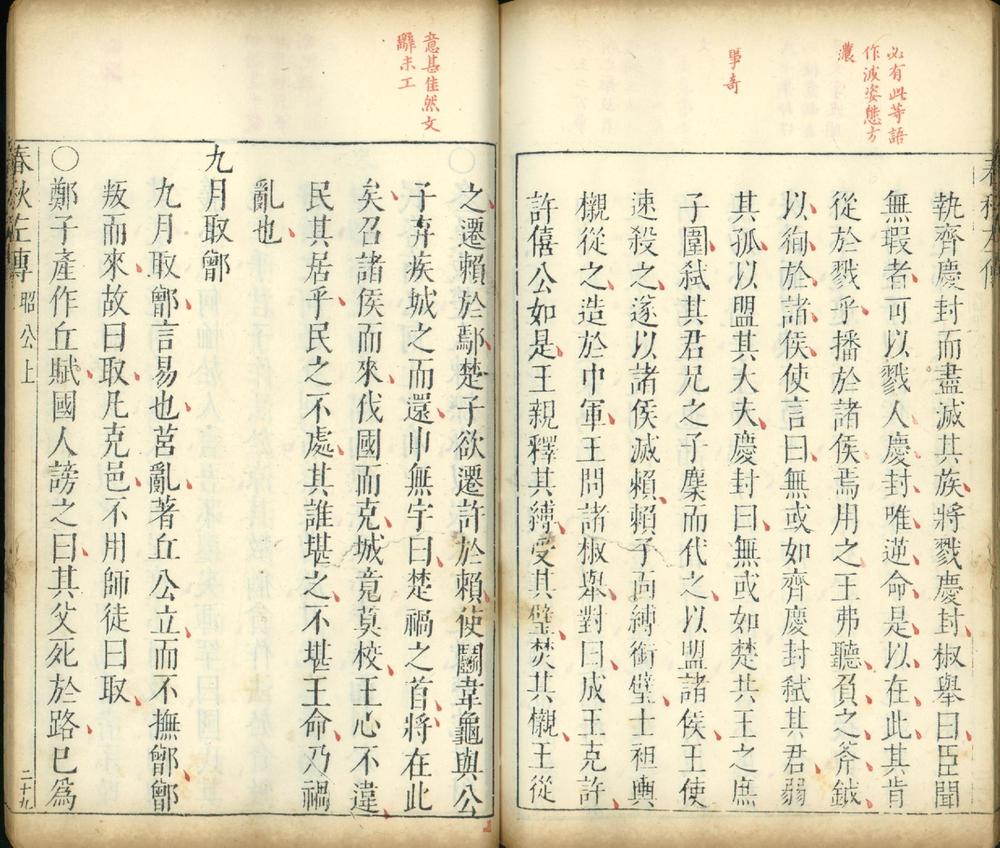 必有此等語
作波姿態方
濃
學奇
執齊慶封而盡滅其族將戮慶封椒舉曰臣聞
無瑕者可以戮人慶封唯逆命是以在此其肯
從於戮乎播於諸侯焉用之王弗聽負之斧鉞
以徇於諸侯使言曰無或如齊慶封弒其君弱
其孤以盟其大夫慶封曰無或如楚共王之庶
子圍弒其君兄之子麇而代之以盟諸侯王使
速殺之遂以諸侯滅賴賴子面縛銜璧士袒輿
櫬從之造於中軍王問諸椒舉對曰成王克許
許僖公如是王親釋其縛受其璧焚其櫬王從
意甚佳然文
辭未工
之遷賴於鄢楚子欲遷許於賴使鬬韋龜與公
子弃疾城之而還申無宇曰楚禍之首將在此
矣召諸侯而來伐國而克城竟莫校王心不違
民其居乎民之不處其誰堪之不堪王命乃禍
亂也
九月取鄫
九月取鄫言易也莒亂著丘公立而不撫鄫鄫
叛而來故曰取凡克邑不用師徒曰取
○鄭子產作丘賦國人謗之曰其父死於路已為
春秋左傳 昭公上 二十九